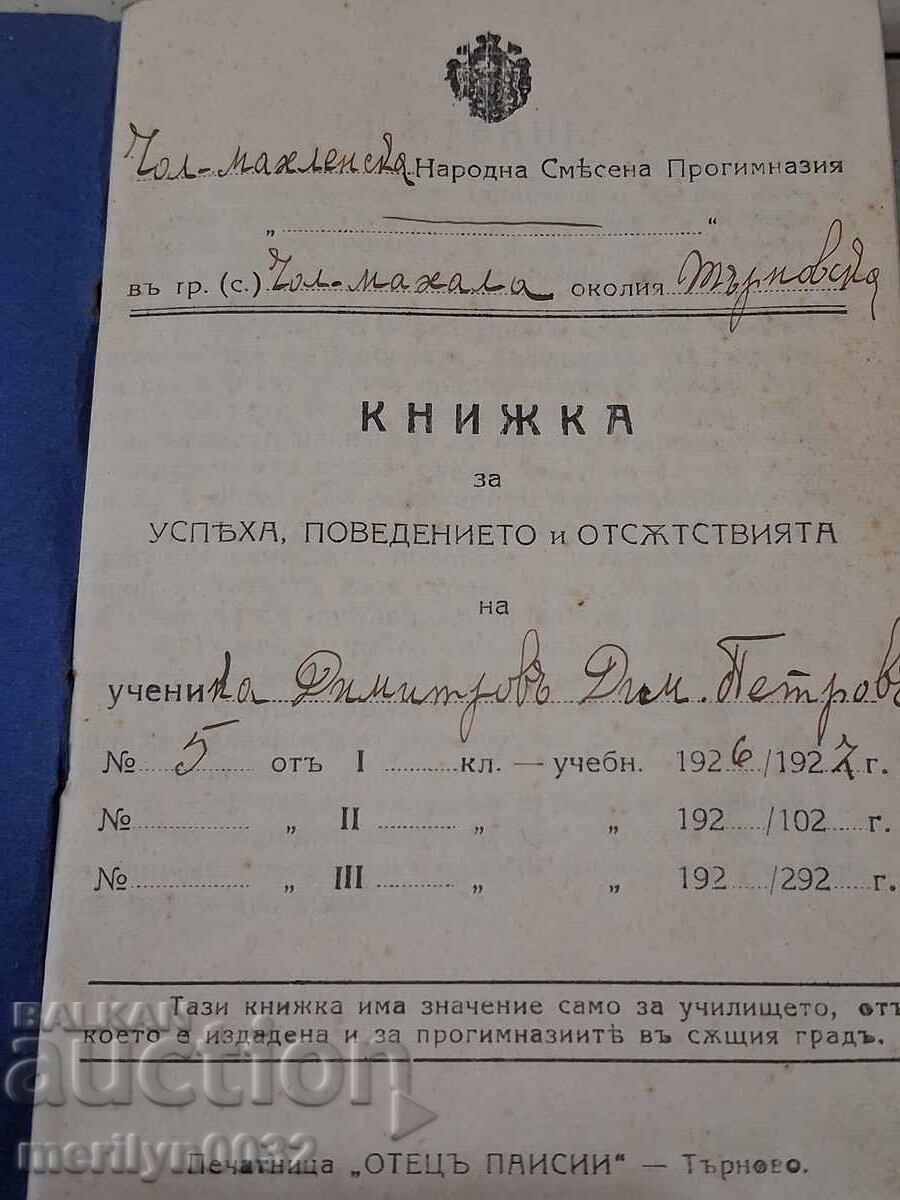 Чол-махленска Народна Смѣсена Прогимназия
„ “
въ гр. (с.) Чол-махала околия Търновска
КНИЖКА
за
УСПѢХА, ПОВЕДЕНИЕТО и ОТСѪТСТВИЯТА
на
ученика Димитровъ Дим. Петровъ
№ 5 отъ I кл. — учебн. 1926/1927 г.
№ „ II „ „ 192 /102 г.
№ „ III „ „ 192 /292 г.
Тази книжка има значение само за училището, отъ
което е издадена и за прогимназиитѣ въ сѫщия градъ.
Печатница „ОТЕЦЪ ПАИСИИ“ — Търново.
BALKAN
auction
merilyn0032